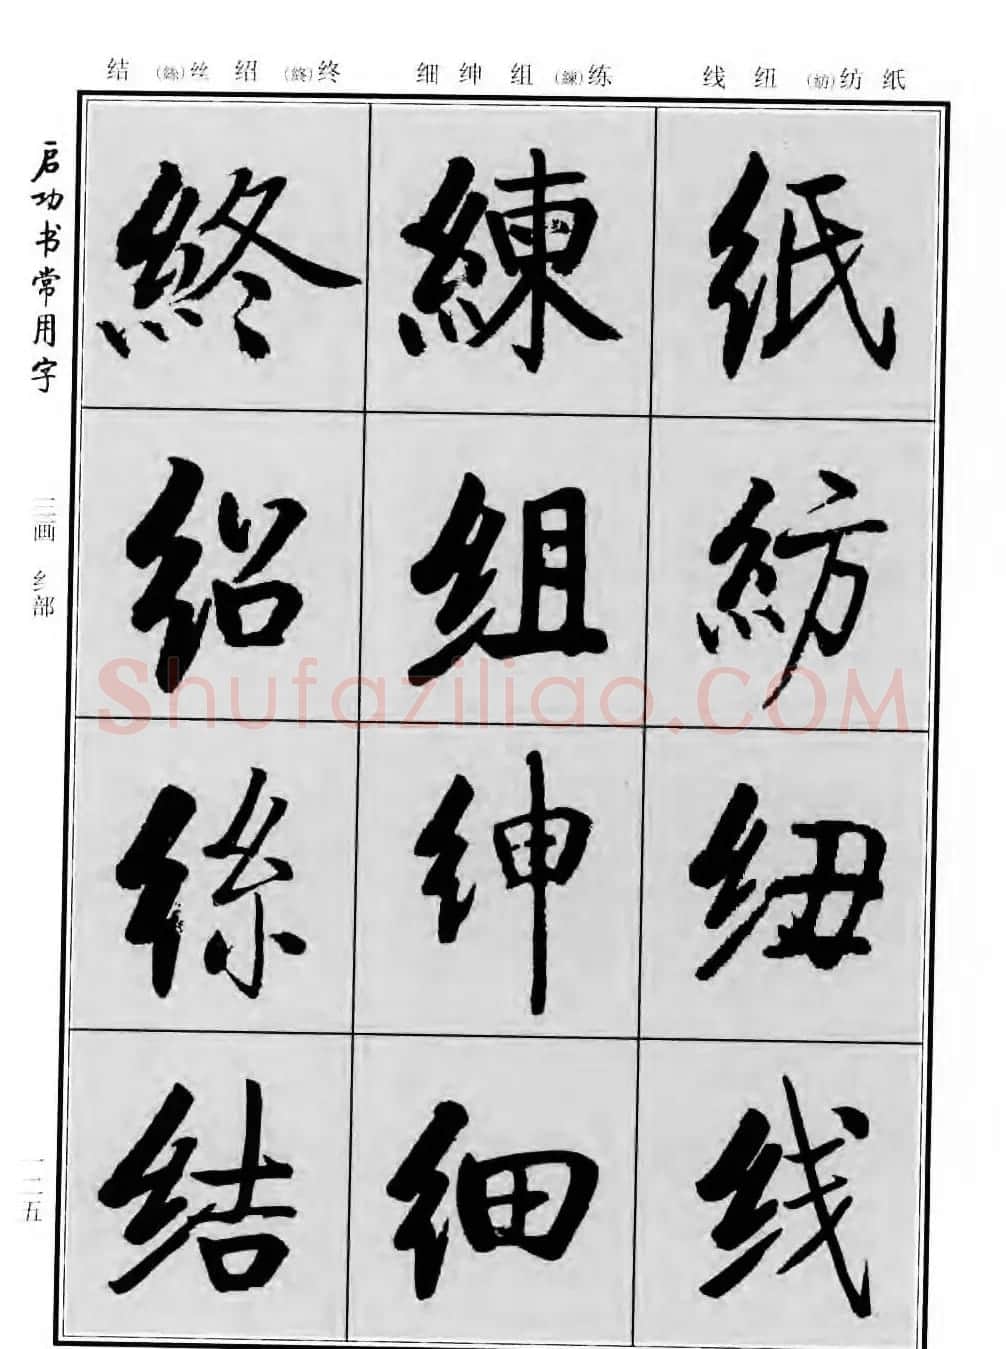 结 (絲)丝 绍 (終)终 细 绅 组 (練)练 线 纽 (紡)纺 纸
启功书常用字
三画 纟部
一二五
終 練 纸
绍 组 紡
絲 绅 纽
结 细 线
Shufaziliao.COM